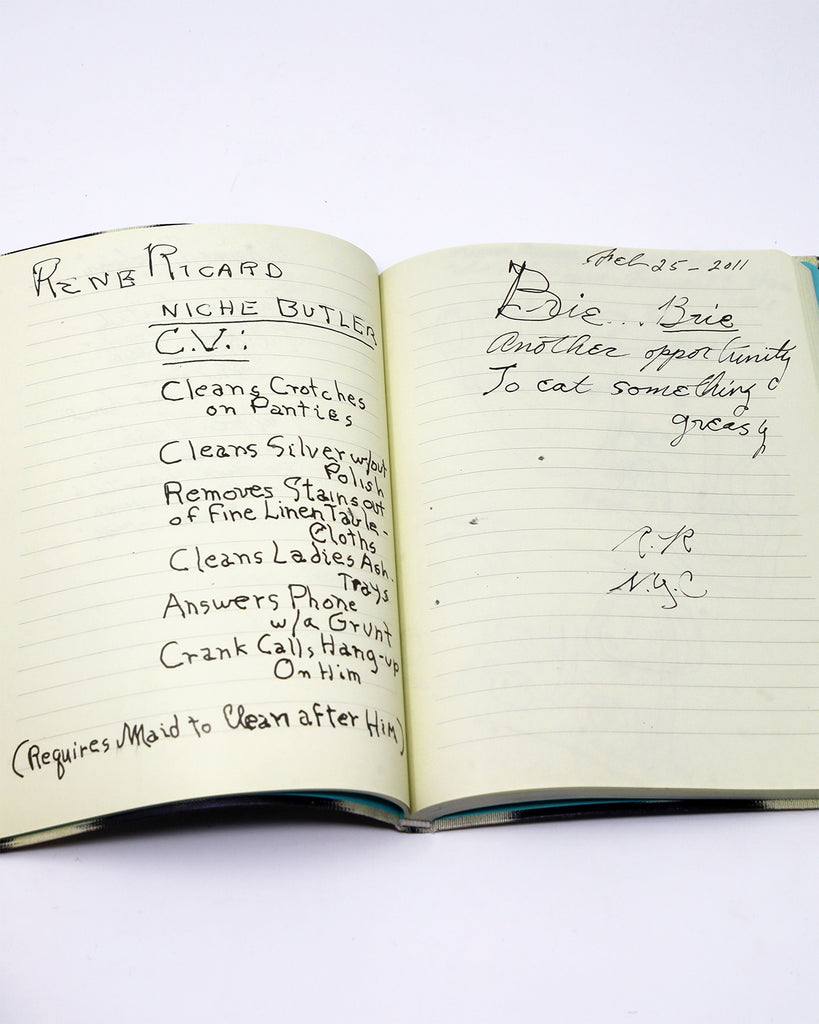 RENE RICARD
NICHE BUTLER
C.V.:
Cleans Crotches
on Panties
Cleans Silver w/out
Polish
Removes Stains out
of Fine Linen Table-
Cloths
Cleans Ladies Ash-
Trays
Answers Phone
w/a Grunt
Crank Calls Hang-up
On Him
(Requires Maid to Clean after Him)
Feb 25 - 2011
Brie... Brie
Another opportunity
To eat something
greasy
R.R
N.Y.C